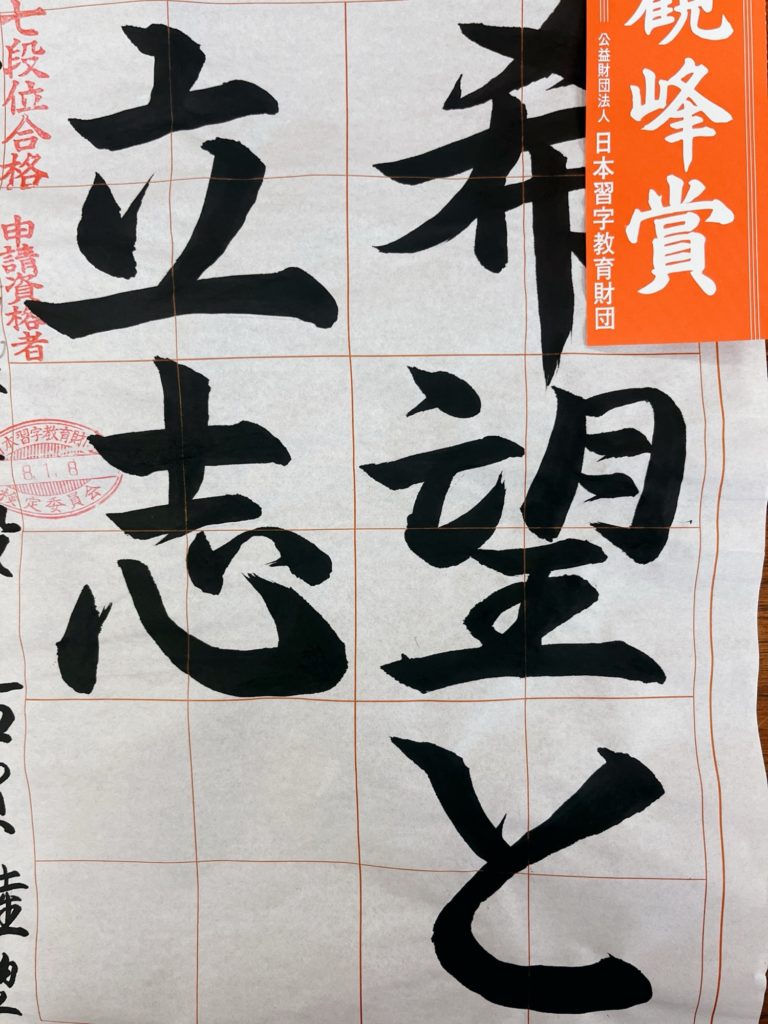 希望と
立志
観峰賞
公益財団法人 日本習字教育財団
七段位合格 申請資格者
本習字教育財
8.1.8
定委員会
段